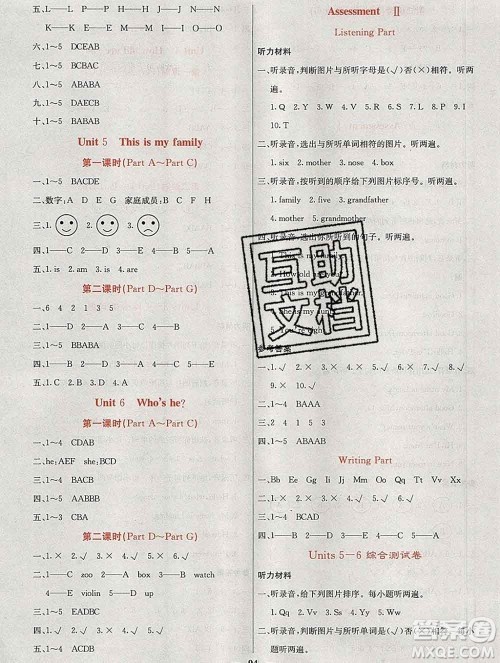 五、L——L　P——P　M——M　I——I
O——O　J——J　K——K　N——N
六、1~5　DCEAB
七、1~5　BCBAC
八、1~5　ABABA
九、1~5　DAECB
十、1~5　BABAB
Unit 5　This is my family
第一课时(Part A~Part C)
一、1~5　BACDE
二、数字：A　D　G　I　家庭成员：B　C　E　F　H
三、
四、1——C　2——D　3——E　4——A　5——B
五、1. is　2. am　3. is　4. is　5. are
第二课时(Part D~Part G)
一、6　4　2　1　3　5
二、1——E　2——A　3——D　4——B　5——C
三、1~5　BBABA
四、1——B　2——D　3——A　4——E　5——C
五、1. C　2. B　3. A　4. E　5. D
Unit 6　Who's he?
第一课时(Part A~Part C)
一、1~4　CDAB
二、he：AEF　she：BCD
三、1~4　BACB
四、1~5　AABBB
五、1~4　CBAD
第二课时(Part D~Part G)
一、1. √　2. √　3. ×　4. ×　5. √　6. √
二、1——c　zoo　2——a　box　3——b　watch
4——e　violin　5——d　up
三、1~5　EADBC
四、1. √　2. √　3. ×　4. √　5. ×
五、1——B　2——A　3——D　4——E　5——C
Assessment　Ⅱ
Listening Part
听力材料
一、听录音，判断图片与所听字母是(√)否(×)相符。听两
遍。
1. Q　2. Y　3. T　4. X　5. Z　6. R
二、听录音，选出与所听单词相符的图片。听两遍。
1. six　2. mother　3. nose　4. box
三、听录音，按听到的顺序给下列图片标序号。听两遍。
1. family　2. five　3. grandfather
4. mother　5. grandmother
四、听录音，选出你所听到的句子。听两遍。
1. This is my family.
2. How old are you?
3. This is my grandfather.
4. She is my aunt.
5. You're right.
参考答案
一、1. √　2. ×　3. √　4. ×　5. √　6. √
二、1~4　BAAA
三、2　4　1　5　3
四、1~5　ABABA
Writing Part
一、Bb　Ee　Gg　Hh　Ii　Mm　Nn　Qq　Uu
二、1. ×　2. √　3. √　4. ×　5. √
三、1~4　BCAD
四、1——B　2——A　3——D　4——E　5——C
Units 5—6 综合测试卷
听力材料
一、听录音，给下列图片排序。每小题听两遍。
1. Qq　2. Vv　3. Ww　4. Uu　5. Ss
二、听录音，判断图片与所听单词是(√)否(×)相符。每小
题听两遍。
94
互助
文档
答案圈
MXQE.COM